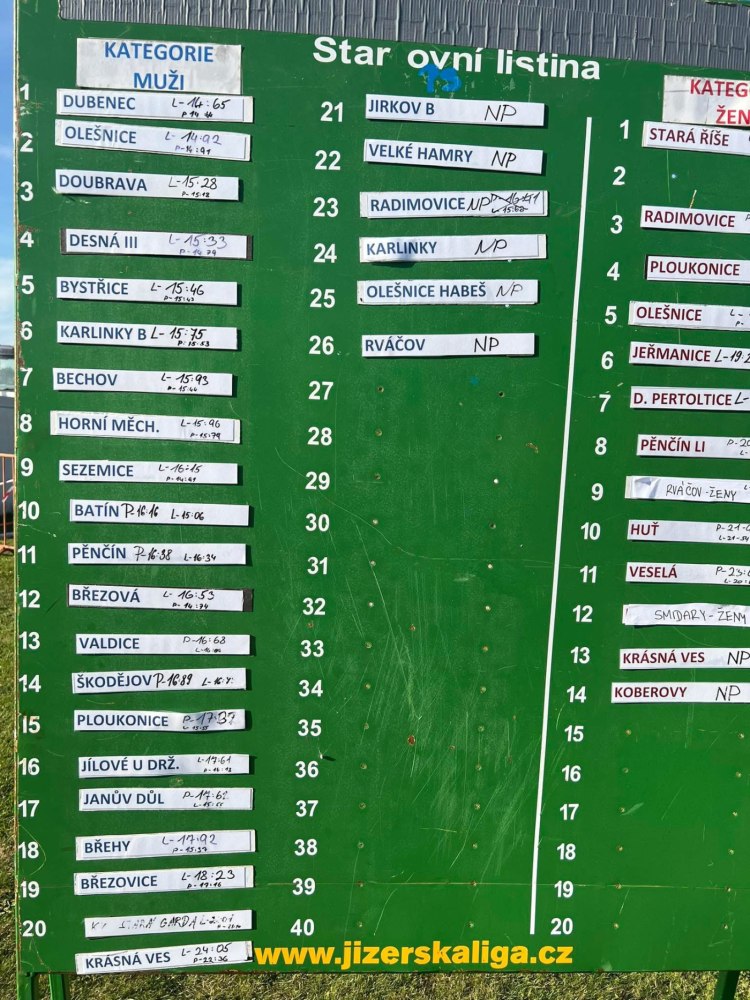 Star ovní listina
KATEGORIE
MUŽI
1 DUBENEC L-14:65
P 14 44
2 OLEŠNICE L-14:92
P-14:91
3 DOUBRAVA L-15:28
P-15:18
4 DESNÁ III L-15:33
P-14:79
5 BYSTŘICE L-15:46
P-15:43
6 KARLINKY B L-15:75
P:15:53
7 BECHOV L-15:93
P-15:44
8 HORNÍ MĚCH. L-15:96
P-15:79
9 SEZEMICE L-16:15
P-14:41
10 BATÍN P-16:16 L-15:06
11 PĚNČÍN P-16:38 L-16:34
12 BŘEZOVÁ L-16:53
P-14:74
13 VALDICE P-16:68
14 ŠKODĚJOV P-16:89
15 PLOUKONICE P-17:37
16 JÍLOVÉ U DRŽ. L-17:61
17 JANŮV DŮL P-17:62
L-15:55
18 BŘEHY L-17:92
P-15:37
19 BŘEZOVICE L-18:23
P-17:16
20 GARDA
KRÁSNÁ VES L-24:05
P-22:36
21 JIRKOV B NP
22 VELKÉ HAMRY NP
23 RADIMOVICE NP
24 KARLINKY NP
25 OLEŠNICE HABEŠ NP
26 RVÁČOV NP
27
28
29
30
31
32
33
34
35
36
37
38
39
40
KATEG
ŽEN
1 STARÁ ŘÍŠE
2
3 RADIMOVICE
4 PLOUKONICE
5 OLEŠNICE L-
6 JEŘMANICE L-19:2
7 D. PERTOLTICE L-
8 PĚNČÍN LI P-20
L-
9 RVÁČOV-ŽENY
10 HUŤ P-21-
L-21-54
11 VESELÁ P-23:
L-20:
12 SMIDARY-ŽENY
13 KRÁSNÁ VES NP
14 KOBEROVY NP
15
16
17
18
19
20
www.jizerskaliga.cz